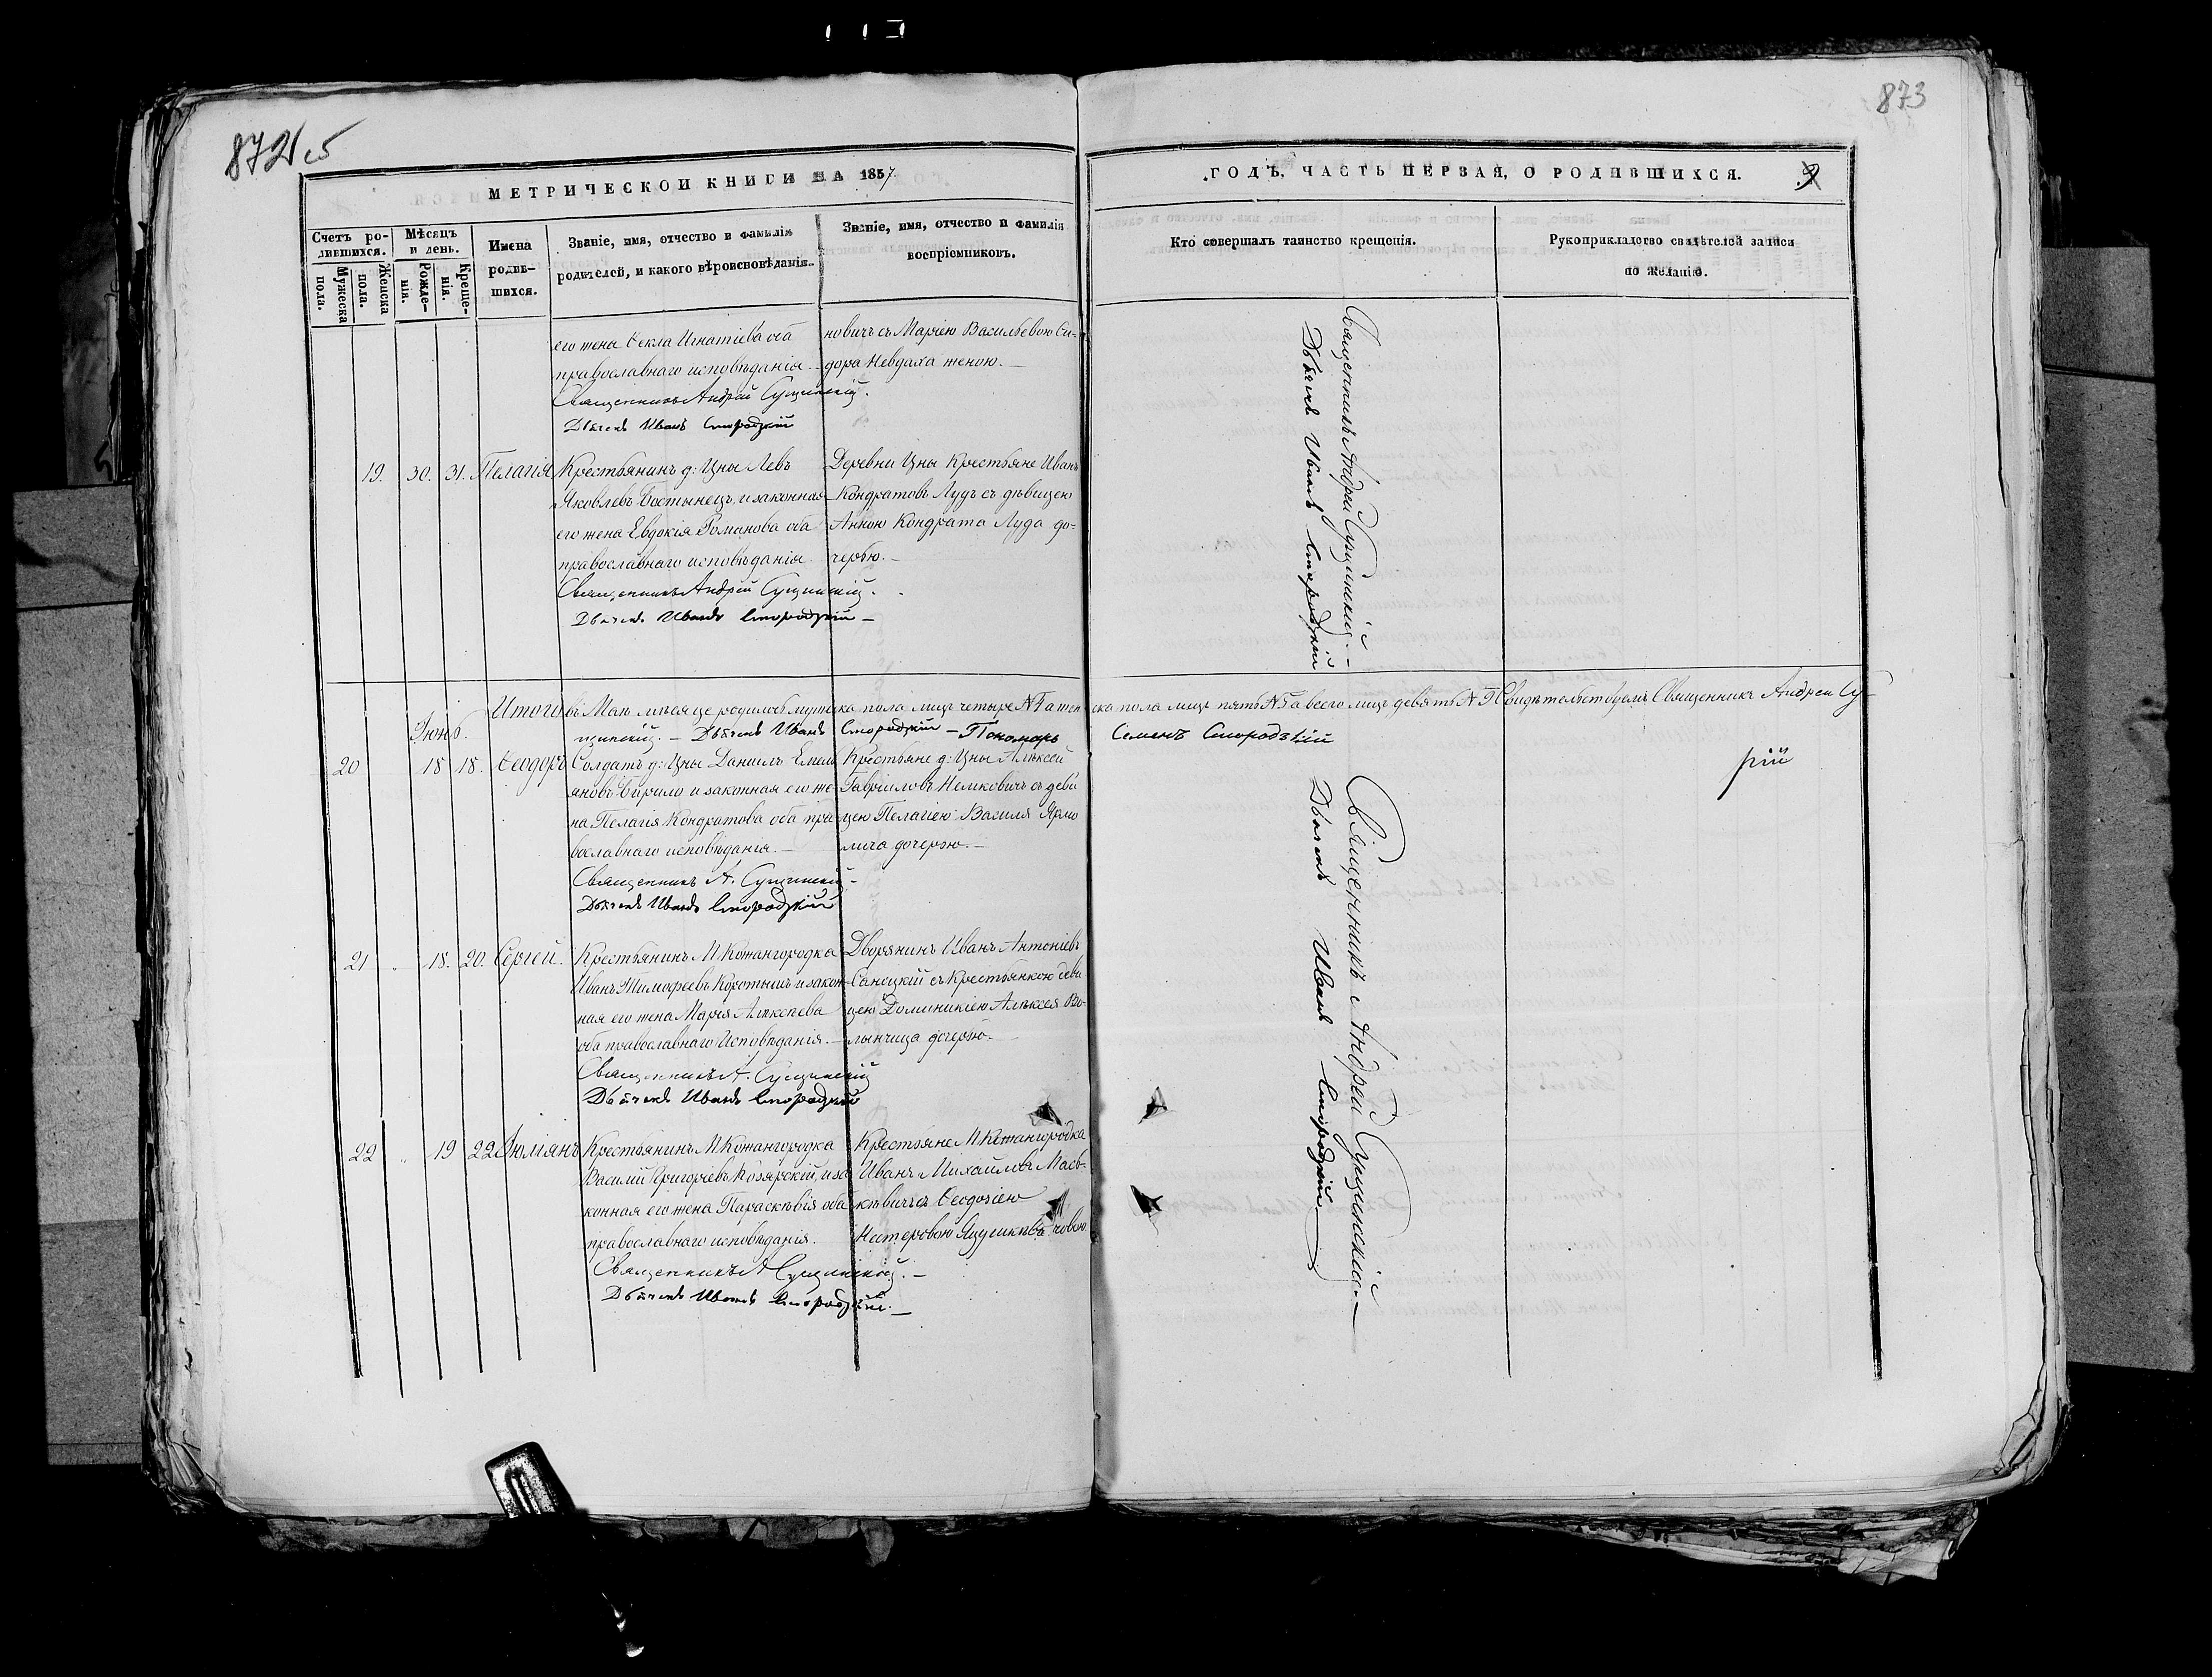 872 об
873
МЕТРИЧЕСКОЙ КНИГИ НА 1857
ГОДЪ, ЧАСТЬ ПЕРВАЯ, О РОДИВШИХСЯ.
Счетъ родившихся.
Мужеска пола.
Женска пола.
Мѣсяцъ и день.
Рожденія.
Крещенія.
Имена родившихся.
Званіе, имя, отчество и фамилія
родителей, и какого вѣроисповѣданія.
Званіе, имя, отчество и фамилія
воспріемниковъ.
Кто совершалъ таинство крещенія.
Рукоприкладство свидѣтелей записи
по желанію.
его жена Ѳекла Игнатіева оба
православнаго исповѣданія.
Священникъ Андрей Сущинскій.
Дьячекъ Иванъ Смородскій
новичъ съ Маріею Васильевою Си-
дора Невдаха женою.
Священникъ Андрей Сущинскій.
Дьячекъ Иванъ Смородскій
19. 30. 31. Пелагія
Крестьянинъ д: Цны Левъ
Яковлевъ Бостынецъ и законная
его жена Евдокія Романова оба
православнаго исповѣданія
Священникъ Андрей Сущинскій.
Дьячекъ Иванъ Смородскій
Деревни Цны Крестьяне Иванъ
Кондратовъ Лудъ съ дѣвицею
Анною Кондрата Луда до-
черью.
Итого въ Маѣ мѣсяце родилось мужеска пола лицъ четыре № 4 а женска пола лицъ пять № 5 а всего лицъ девять № 9 Свидѣтельствуемъ Священникъ Андрей Су-
щинскій. Дьячекъ Иванъ Смородскій Пономарь Семенъ Смородзкій
Июнь.
20 18 18. Ѳеодоръ
Солдатъ д: Цны Даніилъ Емель
яновъ Вирило и законная его же
на Пелагія Кондратова оба пра
вославнаго исповѣданія.
Священникъ А. Сущинскій
Дьячекъ Иванъ Смородскій
Крестьяне д: Цны Алексей
Гавріиловъ Немковичъ съ деви
цею Пелагіею Василя Ярмо
лича дочерью.
Священникъ Андрей Сущинскій.
Дьячекъ Иванъ Смородскій
21 18. 20. Сергей.
Крестьянинъ М. Кожангородка
Иванъ Тимофеевъ Коротышъ и закон
ная его жена Марія Алексеева
оба православнаго исповѣданія.
Священникъ А. Сущинскій
Дьячекъ Иванъ Смородскій
Дворянинъ Иванъ Антоніевъ
Саноцкій съ Крестьянкою деви
цею Доминикіею Алексея Во-
лынчица дочерью.
22 19 22 Люліанъ
Крестьянинъ М. Кожангородка
Василій Григоріевъ Козярскій, и за
конная его жена Параскѣвія оба
православнаго исповѣданія.
Священникъ А Сущинскій.
Дьячекъ Иванъ Смородскій.
Крестьяне М. Кожангородка
Иванъ Михайловъ Мась-
кѣвичъ съ Ѳеодосіею
Нестеровою